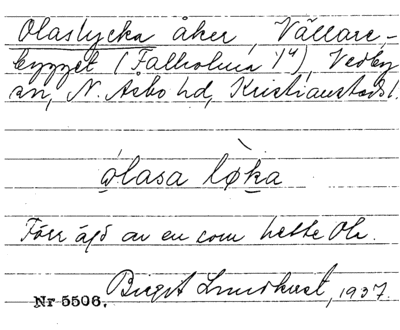 Olaslycka åker, Vällare-
bygget (Falholma 1/4), Vedby
sn, N. Åsbo hd, Kristianstads l.
olasa løka
Förr ägd av en som hette Ola.
Nr 5506. Birgit Lundkvist, 1937.